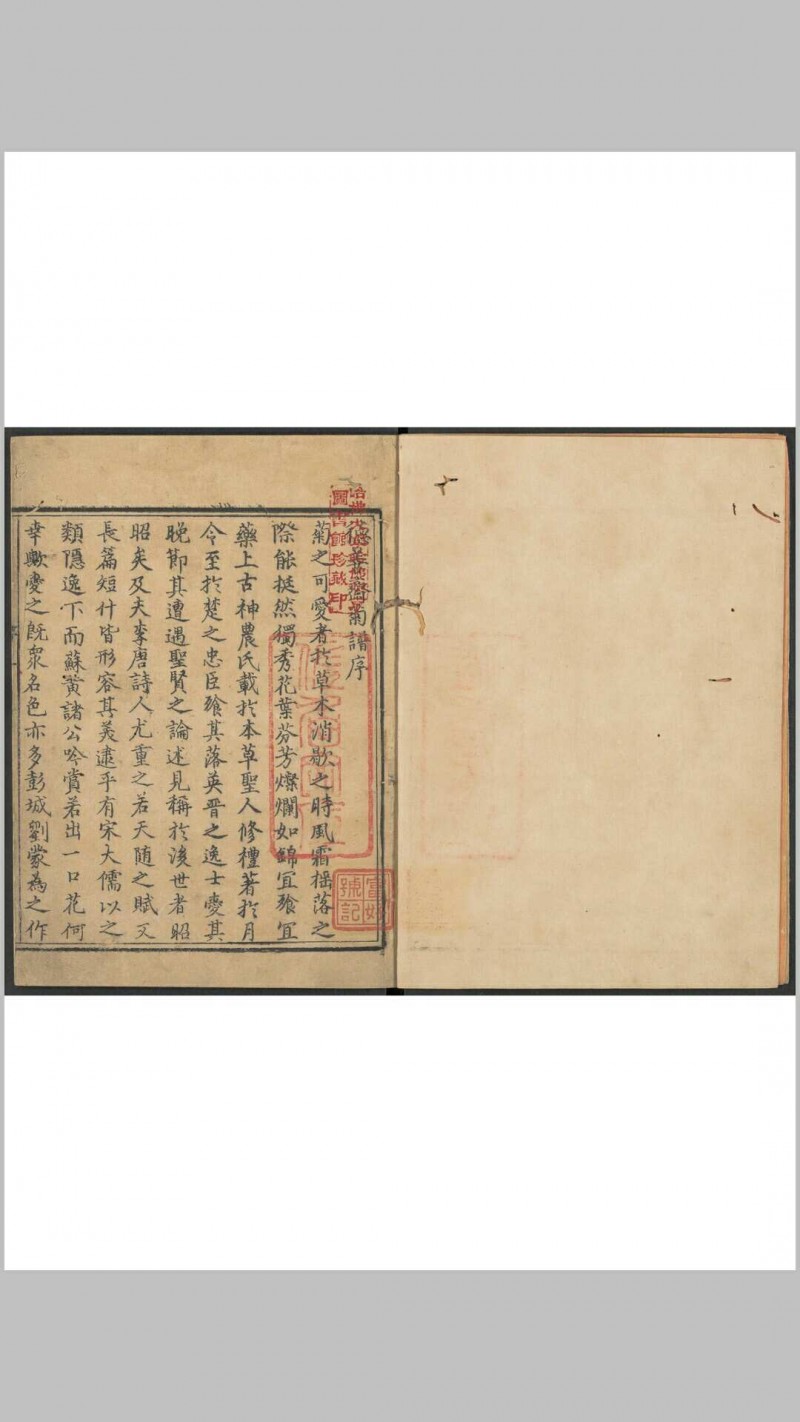 德善齋菊譜序
菊之可愛者於草木消歇之時風霜揺落之
際能挺然獨秀花葉芬芳燦爛如錦宜飱宜
藥上古神農氏載於本草聖人修禮著於月
令至於楚之忠臣飱其落英晋之逸士愛其
晚節其遭遇聖賢之論述見稱於後世者昭
昭矣及夫李唐詩人尤重之若天随之賦又
長篇短什皆形容其美逮乎有宋大儒以之
類隱逸下而蘇黄諸公吟賞若出一口花何
幸歟愛之既衆名色亦多彭城劉蒙為之作
哈佛大學
圖書館珍藏印
號記